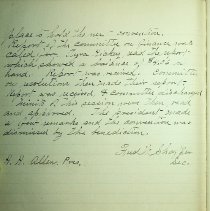 place to hold the next convention.
Report of the committee on finance was
called for.
which showed a balance of in
hand. Report was received. Committee
on resolutions then made their report.
Report was received & committee discharged
Minutes of this session were then read
and approved. The president made
a few remarks and the convention was
dismissed by the benediction.
Fred
H. H. Allen, Pres. Sec.